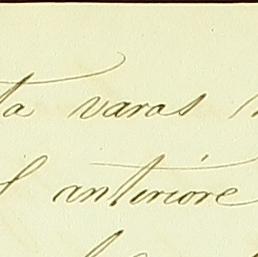 ta varas
l anteriore